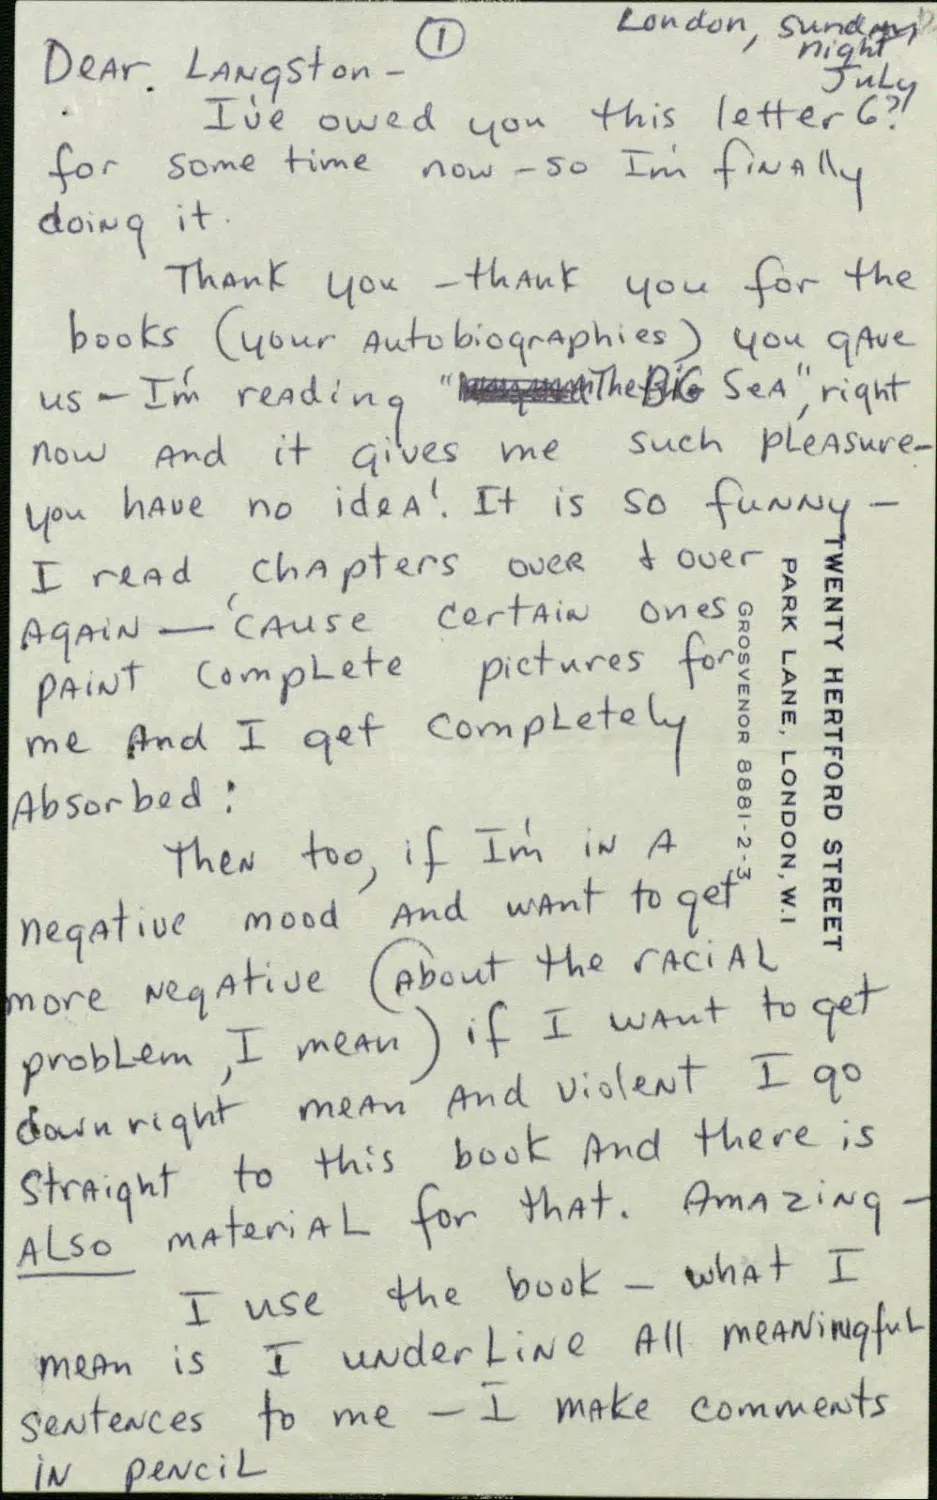 ①
London, Sunday
night
July
6?
Dear Langston –
I've owed you this letter
for some time now – so I'm finally
doing it.
Thank you – thank you for the
books (your autobiographies) you gave
us – I'm reading "The Big Sea", right
now and it gives me such pleasure –
you have no idea! It is so funny –
I read chapters over & over
again – 'cause certain ones
paint complete pictures for
me and I get completely
absorbed:
Then too, if I'm in a
negative mood and want to get
more negative (about the racial
problem, I mean) if I want to get
downright mean and violent I go
straight to this book and there is
also material for that. Amazing –
I use the book – what I
mean is I underline all meaningful
sentences to me – I make comments
in pencil
TWENTY HERTFORD STREET
PARK LANE, LONDON, W.1
GROSVENOR 8881-2-3